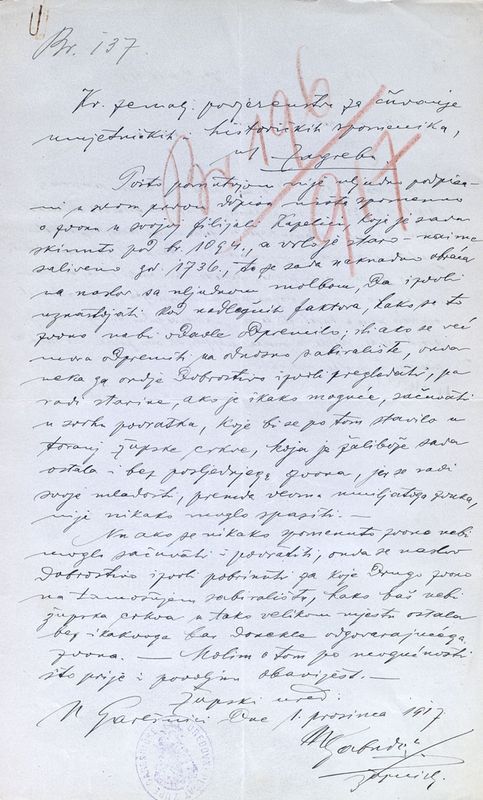 Br. 137.
Br 196/917
Kr. zemalj. povjerenstvu za čuvanje
umjetničkih i historičkih spomenika,
u Zagrebu.
Pošto nije uljudno podpisani
u svom prvom dopisu ništa spomenuo
o zvonu u svojoj filijali Kapelici, koje je sada
skinuto pod br. 1094., a vrlo je staro – naime
saliveno god. 1736., to se sada naknadno obraća
na naslov sa uljudnom molbom, da izvoli
uznastojati kod nadležnih faktora, kako se to
zvono nebi odavle odpremilo; ili ako se već
mora odpremiti na odnosno sabiralište, onda
neka ga ondje dobrostivo izvoli pregledati, pa
radi starine, ako je ikako moguće, sačuvati
u svrhu povratka, koje bi se po tom stavilo u
toranj župske crkve, koja je žalibože sada
ostala i bez posljednjega zvona, jer se radi
svoje mladosti, premda veoma umiljatoga zvuka,
nije nikako moglo spasiti. –
Nu ako se nikako spomenuto zvono nebi
moglo sačuvati i povratiti, onda se naslov
dobrostivo izvoli pobrinuti za koje drugo zvono
na tamošnjem sabiralištu, kako baš nebi
župska crkva u tako velikom mjestu ostala
bez ikakvoga bar donekle odgovarajućega
zvona. – Molim o tom po mogućnosti
što prije i povoljnu obavijest. –
Župski ured:
U Garešnici dne 1. prosinca 1917
župnik